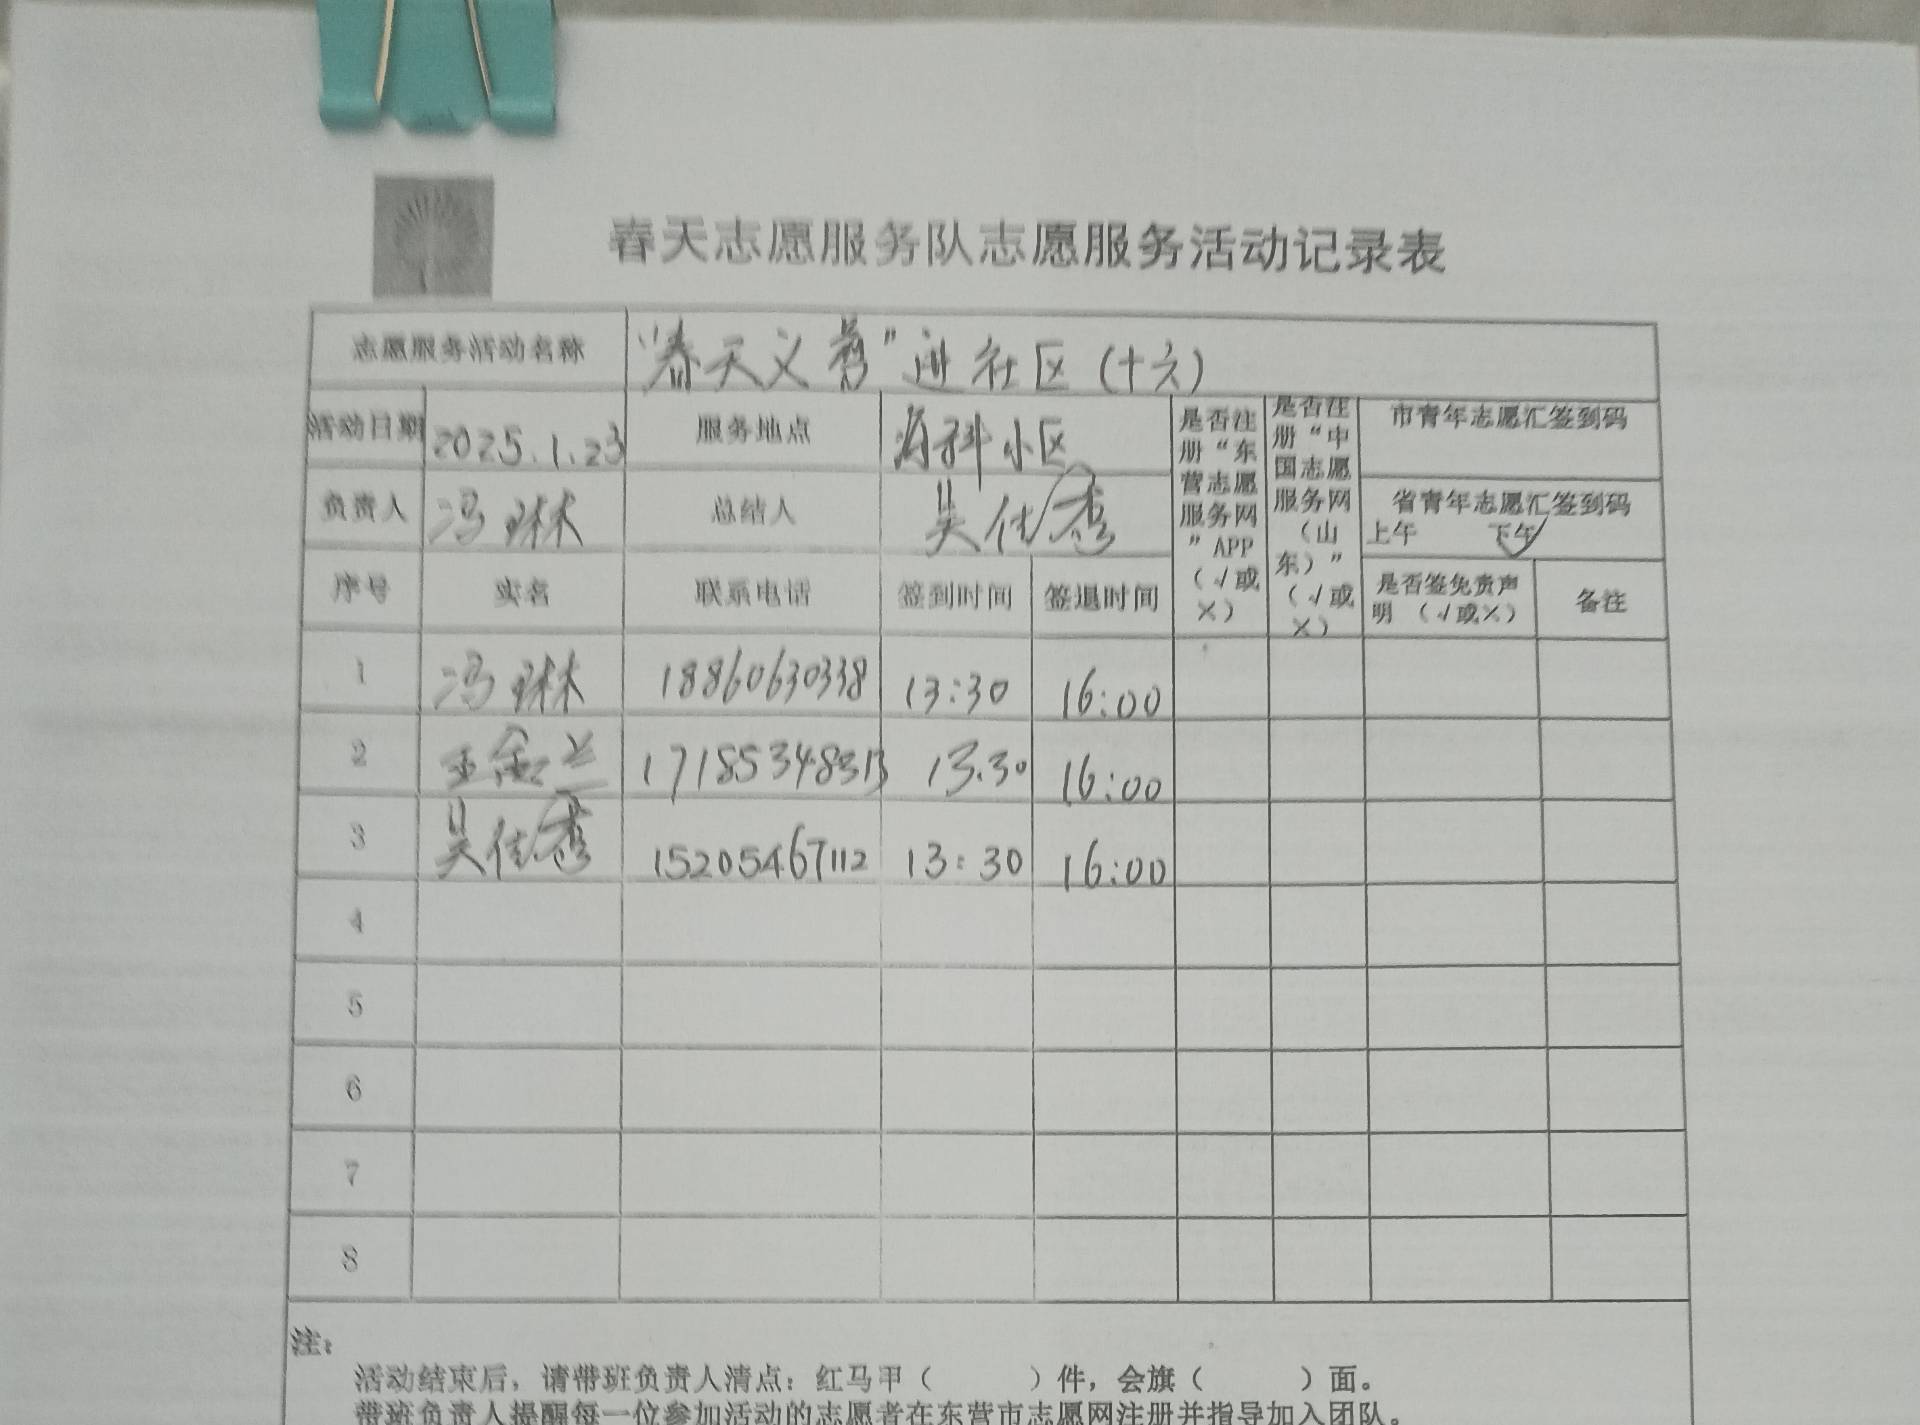 春天志愿服务队志愿服务活动记录表
志愿服务活动名称 “春天义剪”进社区(十六)
活动日期 2025.1.23 服务地点 海科小区 是否注册“东营志愿服务网”APP(√或×) 是否注册“中国志愿服务网(山东)”(√或×) 市青年志愿汇签到码
负责人 冯琳 总结人 吴佳秀 省青年志愿汇签到码
上午 下午√
序号 实名 联系电话 签到时间 签退时间 是否签免责声明(√或×) 备注
1 冯琳 18860630338 13:30 16:00
2 王金兰 13.30 16:00
3 吴佳秀 15205467112 13:30 16:00
4
5
6
7
8
注:
活动结束后,请带班负责人清点:红马甲( )件,会旗( )面。
带班负责人提醒每一位参加活动的志愿者在东营市志愿网注册并指导加入团队。